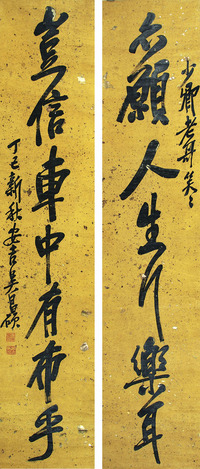 少卿老兄笑之
亦願人生行樂耳
豈信車中有布乎
丁巳新秋安吉吳昌碩